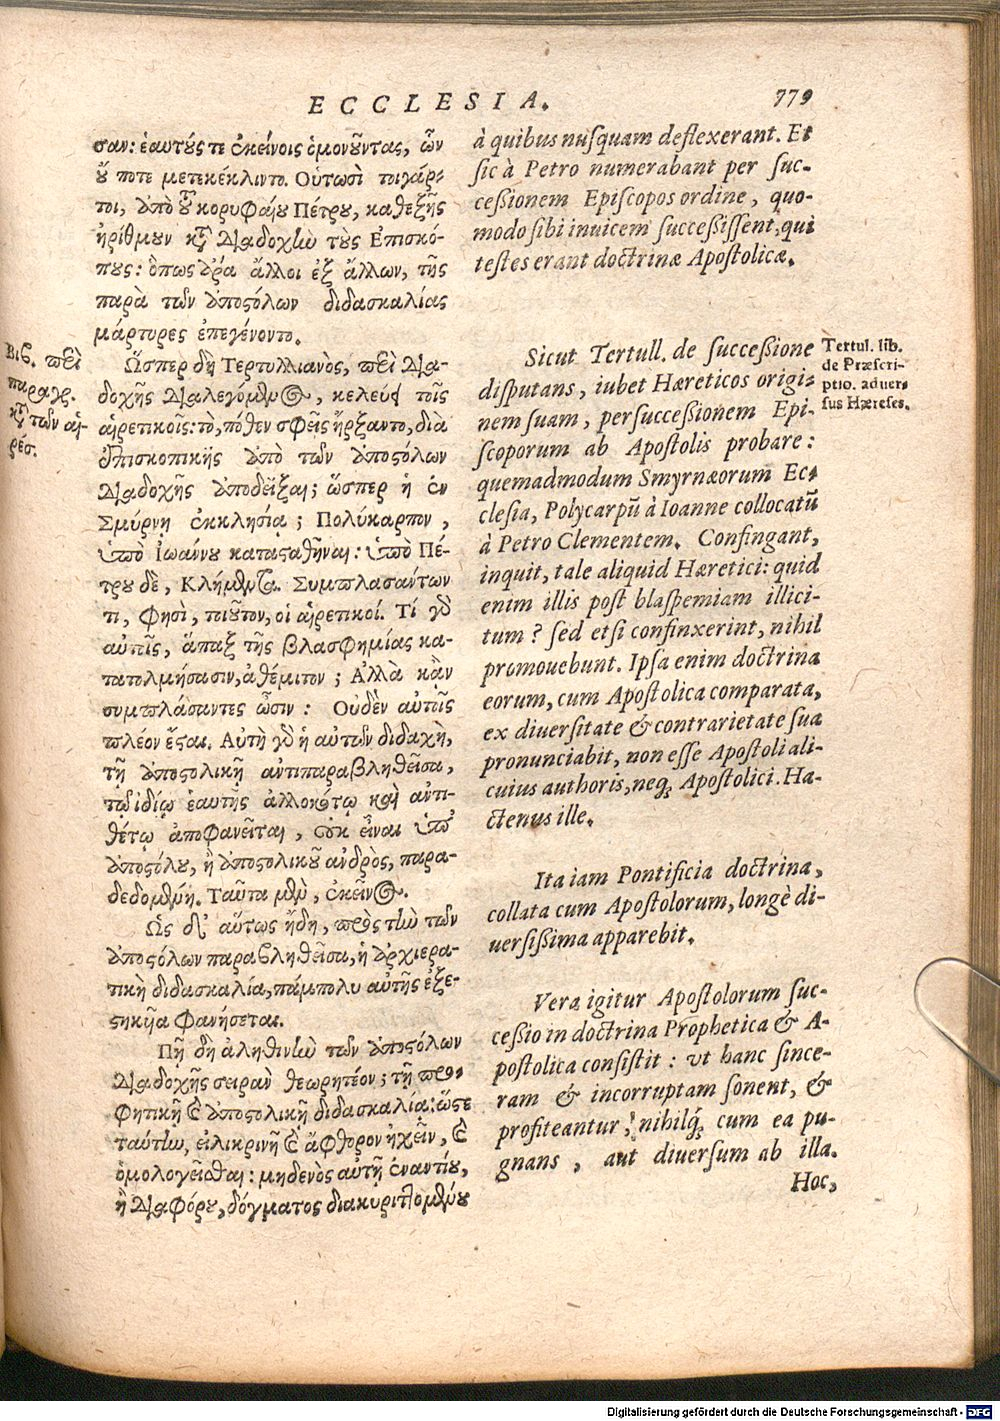 ECCLESIA.
779
σαν: ἑαυτούς τε ἐκείνοις ὁμονοῦντας, ὧν
οὔ ποτε μετεκέκλιντο. Οὑτωσὶ τοιγάρ-
τοι, ἀπὸ τοῦ κορυφαίου Πέτρου, καθεξῆς
ἠρίθμουν κατὰ διαδοχὴν τοὺς Ἐπισκό-
πους: ὅπως ἄρα ἄλλοι ἐξ ἄλλων, τῆς
παρὰ τῶν ἀποστόλων διδασκαλίας
μάρτυρες ἐπεγένοντο.
Βιβ. περὶ
παραγρ.
κατὰ τῶν αἱ-
ρέσ.
Ὥσπερ δὴ Τερτυλλιανὸς, περὶ δια-
δοχῆς διαλεγόμενος, κελεύει τοῖς
αἱρετικοῖς: τὸ, πόθεν σφεῖς ἤρξαντο, διὰ
ἐπισκοπικῆς ἀπὸ τῶν ἀποστόλων
διαδοχῆς ἀποδεῖξαι; ὥσπερ ἡ ἐν
Σμύρνῃ ἐκκλησία; Πολύκαρπον,
ὑπὸ Ἰωάννου κατασταθῆναι: ὑπὸ Πέ-
τρου δὲ, Κλήμεντα. Συμπλασάντων
τι, φησὶ, τοιοῦτον, οἱ αἱρετικοί. Τί γὰρ
αὐτοῖς, ἅπαξ τῆς βλασφημίας κα-
τατολμήσασιν, ἀθέμιτον; Ἀλλὰ κᾂν
συμπλάσαντες ὦσιν: Οὐδὲν αὐτοῖς
πλέον ἔσται. Αὐτὴ γὰρ ἡ αὐτῶν διδαχὴ,
τῇ ἀποστολικῇ ἀντιπαραβληθεῖσα,
τῷ ἰδίῳ ἑαυτῆς ἀλλοκότῳ καὶ ἀντι-
θέτῳ ἀποφανεῖται, οὐκ εἶναι ὑπὸ
ἀποστόλου, ἢ ἀποστολικοῦ ἀνδρὸς, παρα-
δεδομένη. Ταῦτα μὲν, ἐκεῖνος.
Ὡς δ' αὕτως ἤδη, πρὸς τὴν τῶν
ἀποστόλων παραβληθεῖσα, ἡ ἀρχιερα-
τικὴ διδασκαλία, πάμπολυ αὐτῆς ἐξε-
στηκῦια φανήσεται.
Πῇ δὴ ἀληθινὴν τῶν ἀποστόλων
διαδοχῆς σειρὰν θεωρητέον; τῇ προ-
φητικῇ καὶ ἀποστολικῇ διδασκαλίᾳ: ὥστε
ταύτην, εἰλικρινῆ καὶ ἄφθορον ἠχεῖν, καὶ
ὁμολογεῖσθαι: μηδενὸς αὐτῇ ἐναντίου,
ἢ διαφόρου, δόγματος διακυριττομένου
à quibus nusquam deflexerant. Et
sic à Petro numerabant per suc-
cessionem Episcopos ordine, quo-
modo sibi inuicem successissent, qui
testes erant doctrinæ Apostolicæ.
Sicut Tertull. de successione
disputans, iubet Hæreticos origi-
nem suam, per successionem Epi-
scoporum ab Apostolis probare:
quemadmodum Smyrnæorum Ec-
clesia, Polycarpũ à Ioanne collocatũ
à Petro Clementem. Confingant,
inquit, tale aliquid Hæretici: quid
enim illis post blaspemiam illici-
tum? sed etsi confinxerint, nihil
promouebunt. Ipsa enim doctrina
eorum, cum Apostolica comparata,
ex diuersitate & contrarietate sua
pronunciabit, non esse Apostoli ali-
cuius authoris, neq; Apostolici. Ha-
ctenus ille.
Tertul. lib.
de Præscri-
ptio. aduer-
sus Hæreses.
Ita iam Pontificia doctrina,
collata cum Apostolorum, longè di-
uersissima apparebit.
Vera igitur Apostolorum suc-
cessio in doctrina Prophetica & A-
postolica consistit: vt hanc since-
ram & incorruptam sonent, &
profiteantur, nihilq; cum ea pu-
gnans, aut diuersum ab illa.
Hoc,
Digitalisierung gefördert durch die Deutsche Forschungsgemeinschaft - DFG